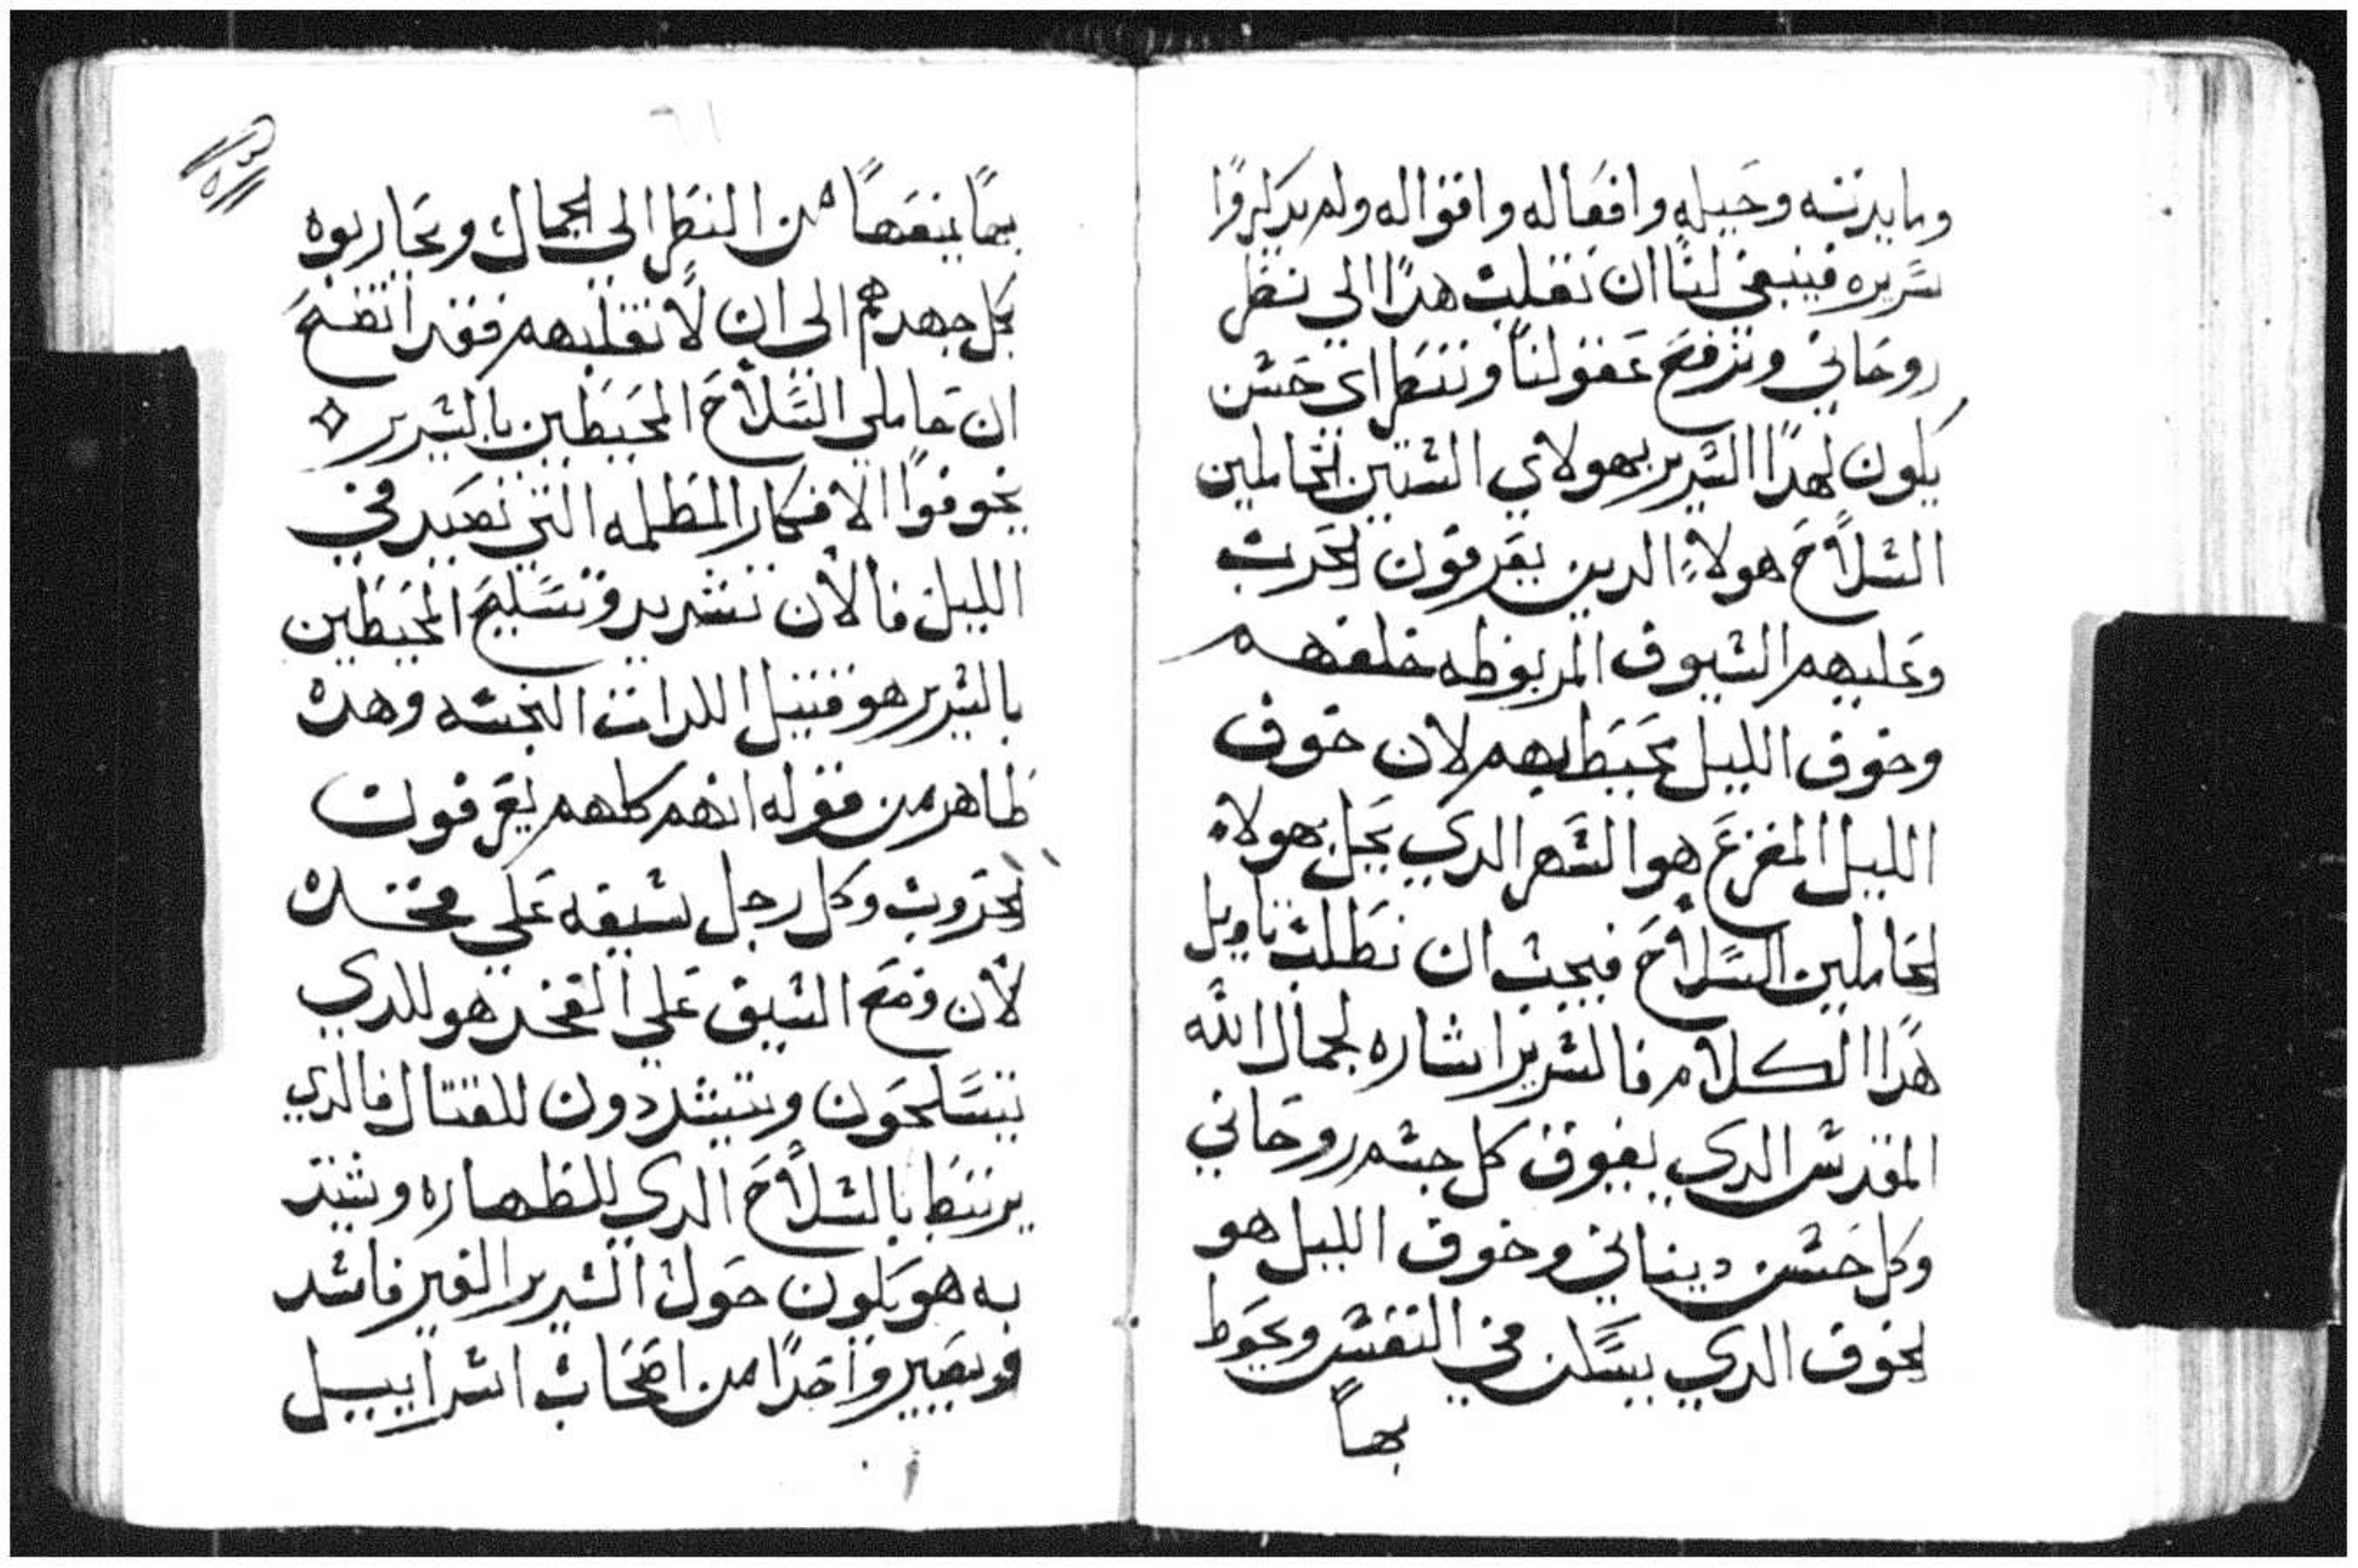 ومايدنسه وحيله وافعاله واقواله ولم يدكروا
سريره فينبغي لنا ان نقلب هدا الي نظر
روحاني ونرفع عقولنا وننظر اي حسن
يكون لهدا السرير بهولاي الستين الحاملين
السلاح هولاء الدين يعرفون الحرب
وعليهم السيوف المربوطه خلفهم
وخوف الليل محيط بهم لان خوف
الليل المفزع هو السهر الدي يجل بهولاء
الحاملين السلاح فيجب ان نطلب تاويل
هدا الكلام فالسرير اشاره لجمال الله
المقدس الدي يفوق كل جسم روحاني
وكل حسن ديناني وخوف الليل هو
الخوف الدي يسكن في النفس ويحوط
بها
١٥٣
٦١
بها يمنعها من النظر الي الجمال ويحاربوه
بكل جهدهم الي ان لا نقلبهم فقد اتضح
ان حاملي السلاح المحيطين بالسرير
يخوفوا الافكار المظلمه التي تصيد في
الليل فالان تشديد وتسليح المحيطين
بالسرير هو قتل اللدات النجسه وهده
ظاهر من قوله انهم كلهم يعرفون
الحروب وكل رجل سيفه علي فخده
لان وضع السيف علي الفخد هو للدي
يتسلحون ويتشددون للقتال فالدي
يرتبط بالسلاح الدي للطهاره وشد
به هو يكون حول السرير الغير فاسد
ويصير واحدا من اصحاب اسراييل